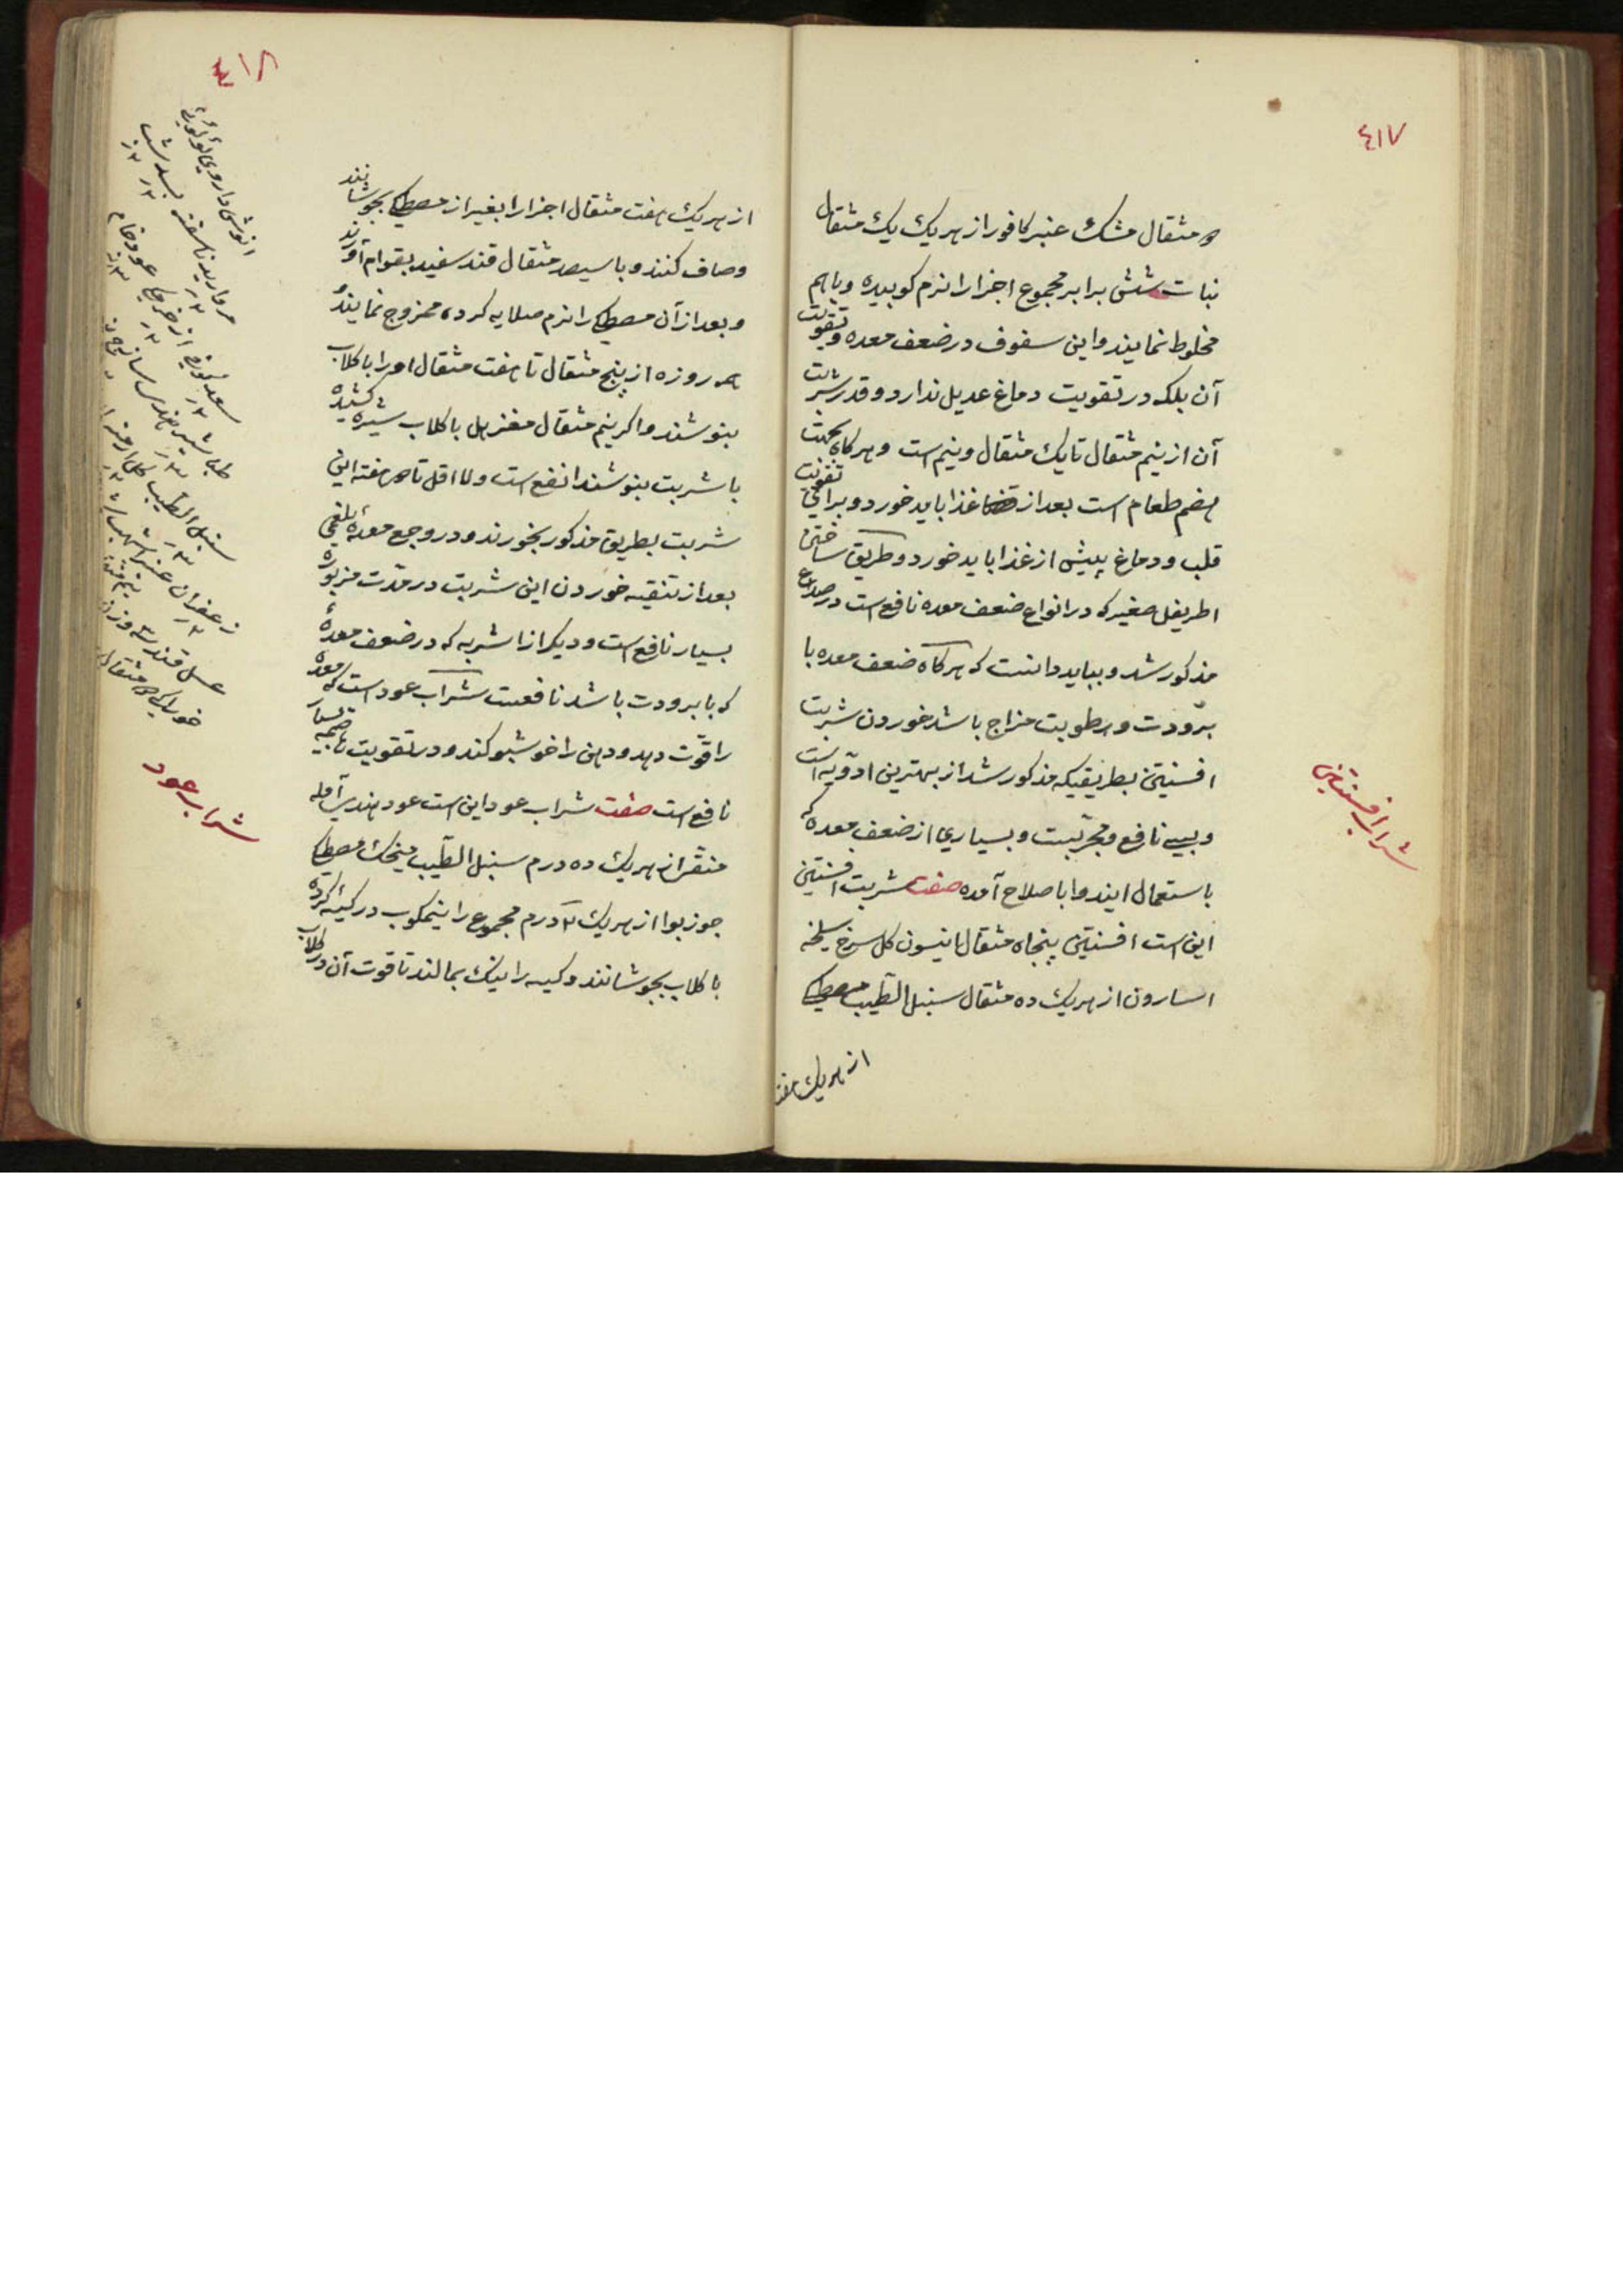 ٤١٧
مثقال مشک عنبر کافور از هریک یک مثقال
نبات شش برابر مجموع اجزا را نرم کوبیده و باهم
مخلوط نمایند و این سفوف در ضعف معده و تقویت
آن بلکه در تقویت دماغ عدیل ندارد و قدر شربت
آن از نیم مثقال تا یک مثقال و نیم است و هرکاه بجهت
هضم طعام است بعد از غذا باید خورد و برای تقویت
قلب و دماغ پیش از غذا باید خورد و طریق ساختن
اطریفل صغیر که در انواع ضعف معده نافع است در صداع
مذکور شد و بباید دانست که هرکاه ضعف معده با
برودت و رطوبت مزاج باشد خوردن شربت
افسنتین بطریقیکه مذکور شد از بهترین ادویه است
و بسی نافع و مجربست و بسیاری از ضعف معده که
باستعمال ایندوا باصلاح آمده صفت شربت افسنتین
این است افسنتین پنجاه مثقال انیسون کل سرخ سلیخه
اسارون از هریک ده مثقال سنبل الطیب مصطکی
از هریک هفت
شراب افسنتین
٤١٨
از هریک هفت مثقال اجزا را بغیر از مصطکی بجوشانند
و صاف کنند و با سیصد مثقال قند سفید بقوام آورند
و بعد از آن مصطکی را نرم صلایه کرده ممزوج نمایند
هر روزه از پنج مثقال تا هفت مثقال او را با کلاب
بنوشند و اکر نیم مثقال مغز هل با کلاب شیره کشیده
با شربت بنوشند انفع است و لا اقل تا هفته این
شربت بطریق مذکور بخورند و در وجع معدهٔ بلغمی
بعد از تنقیه خوردن این شربت در مدت مزبوره
بسیار نافع است و دیکر از اشربه که در ضعف معدهٔ
که با برودت باشد نافعست شراب عود است که معده
را قوّت دهد و دهن را خوشبو کند و در تقویت هاضمه بسیار
نافع است صفت شراب عود این است عود هندی آمله
منقّی از هریک ده درم سنبل الطیب میخک مصطکی
جوز بوا از هریک ٣ درم مجموع را نیمکوب در کیسه کرده
با کلاب بجوشانند و کیسه را نیک بمالند تا قوت آن در کلاب
انوشداروی لؤلؤی
مروارید ناسفته بسد
سعد کوفی عود خام
طباشیر هندی
سنبل الطیب کل ارمنی
زعفران عنبر اشهب
عسل قند
خوراک مثقال
شراب عود